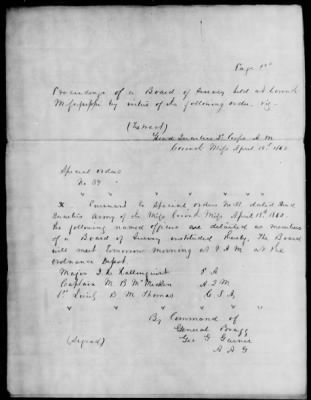 Page 1st
Proceedings of a Board of Survey held at Corinth
Mississippi by virtue of the following order. viz—
(Extract)
Head Quarters 2d Corps A. M.
Corinth Miss April 18th 1862.
Special orders
No 39
X. Pursuant to Special orders No 11. dated Head
Quarters Army of the Miss. Corinth Miss. April 18th 1862.
the following named officers are detailed as members
of a Board of Survey instituted hereby. The Board
will meet tomorrow morning at 9 A M. at the
ordnance Depot.
Major J. H. Hallonquist P. A.
Captain M. B. A. I. M.
1st Lieut. B. M. Thomas C. S. A.
" " " " " "
By Command of
General Bragg
(Signed) Geo. G. Garner
A A G